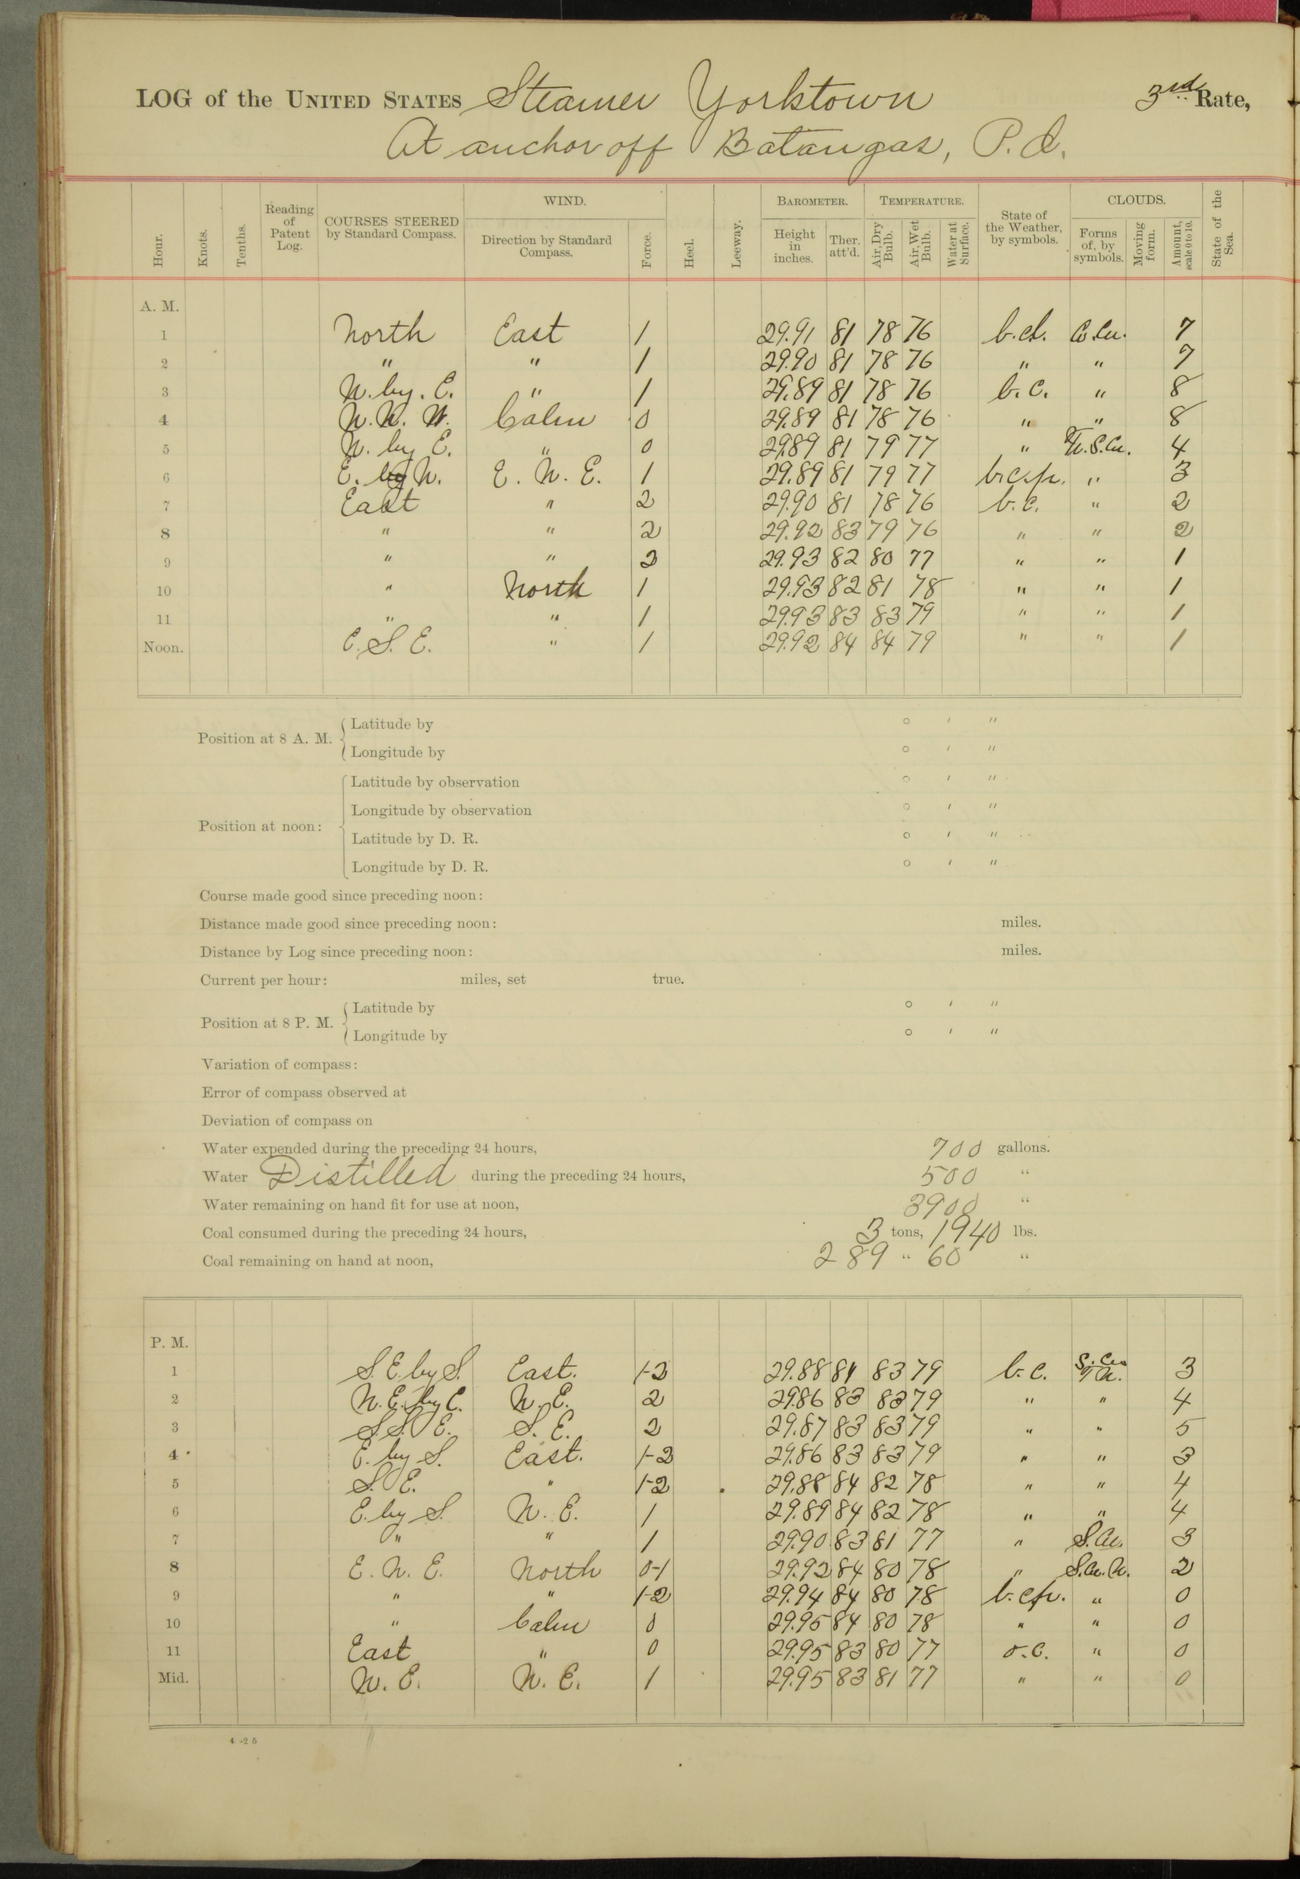 LOG of the UNITED STATES Steamer Yorktown 3rd Rate,
At anchor off Batangas, P. I.
Hour. Knots. Tenths. Reading of Patent Log. COURSES STEERED by Standard Compass. WIND. Direction by Standard Compass. Force. Heel. Leeway. BAROMETER. Height in inches. Ther. att'd. TEMPERATURE. Air, Dry Bulb. Air, Wet Bulb. Water at Surface. State of the Weather, by symbols. CLOUDS. Forms of, by symbols. Moving form. Amount, scale 0 to 10. State of the Sea.
A. M.
1 North East 1 29.91 81 78 76 7
2 " " 1 29.90 81 78 76 " " 7
3 N. by. E. " 1 29.89 81 78 76 b. c. " 8
4 N. N. W. Calm 0 29.89 81 78 76 " " 8
5 N. by E. " 0 29.89 81 79 77 " 4
6 E. by N. E. N. E. 1 29.89 81 79 77 " 3
7 East " 2 29.90 81 78 76 b. c. " 2
8 " " 2 29.92 83 79 76 " " 2
9 " " 2 29.93 82 80 77 " " 1
10 " North 1 29.93 82 81 78 " " 1
11 " " 1 29.93 83 83 79 " " 1
Noon. E. S. E. " 1 29.92 84 84 79 " " 1
Position at 8 A. M. Latitude by ° ′ ″
Longitude by ° ′ ″
Latitude by observation ° ′ ″
Longitude by observation ° ′ ″
Position at noon:
Latitude by D. R. ° ′ ″
Longitude by D. R. ° ′ ″
Course made good since preceding noon:
Distance made good since preceding noon: miles.
Distance by Log since preceding noon: miles.
Current per hour: miles, set true.
Position at 8 P. M. Latitude by ° ′ ″
Longitude by ° ′ ″
Variation of compass:
Error of compass observed at
Deviation of compass on
Water expended during the preceding 24 hours, 700 gallons.
Water Distilled during the preceding 24 hours, 500 "
Water remaining on hand fit for use at noon, 3900 "
Coal consumed during the preceding 24 hours, 3 tons, 1940 lbs.
Coal remaining on hand at noon, 289 " 60 "
P. M.
1 S. E. by S. East. 1-2 29.88 84 83 79 b. c. 3
2 N. E. by E. N. E. 2 29.86 83 83 79 " " 4
3 S. S. E. S. E. 2 29.87 83 83 79 " " 5
4 E. by S. East. 1-2 29.86 83 83 79 " " 3
5 S. E. " 1-2 29.88 84 82 78 " " 4
6 E. by S. N. E. 1 29.89 84 82 78 " " 4
7 " " 1 29.90 83 81 77 " S. Cu. 3
8 E. N. E. North 0-1 29.92 84 80 78 " S. Cu. N. 2
9 " " 1-2 29.94 84 80 78 " 0
10 " Calm 0 29.95 84 80 78 " " 0
11 East " 0 29.95 83 80 77 o. c. " 0
Mid. N. E. N. E. 1 29.95 83 81 77 " " 0
4-25